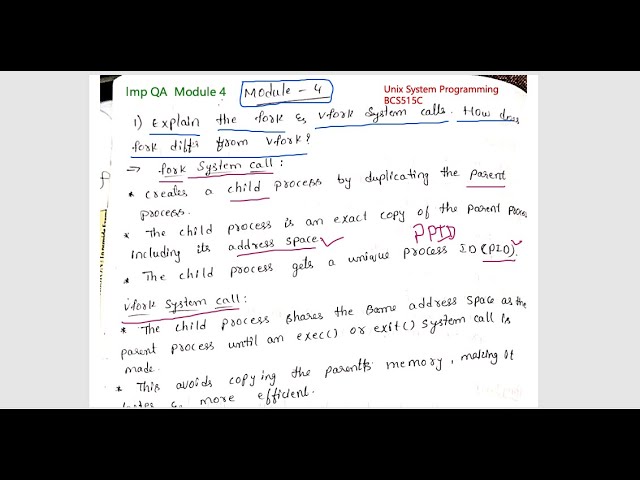 Imp QA Module 4
Module - 4
Unix System Programming
BCS515C
1) Explain the fork & vfork System calls. How does
fork differ from vfork?
⇒ fork System call :
* creates a child process by duplicating the parent
process.
* The child process is an exact copy of the parent process
including its address space ✓
PPID
* The child process gets a unique process ID (PID). ✓
vfork System call :
* The child process shares the same address space as the
parent process until an exec() or exit() system call is
made.
* This avoids copying the parent's memory, making it
more efficient.